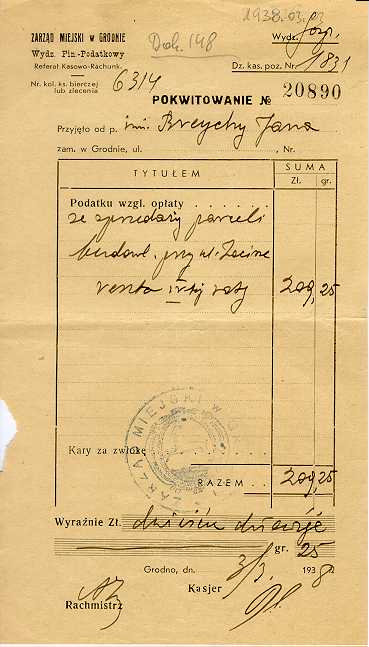 1938.03.03
ZARZĄD MIEJSKI w GRODNIE
Wydz. Fin.-Podatkowy
Referat Kasowo-Rachunk.
Nr. kol. ks. bierczej
lub zlecenia
6314
Dok. 148
Wydz.
Dz. kas. poz. Nr. 1831
POKWITOWANIE № 20890
Przyjęto od p. inż. Breychy Jana
zam. w Grodnie, ul. Nr.
TYTUŁEM
SUMA
Zł. gr.
Podatku wzgl. opłaty
ze sprzedaży parceli
budowl. przy ul.
reszta IV-tej raty 209,25
Kary za zwłokę
ZARZĄD MIEJSKI W
RAZEM 209,25
Wyraźnie Zł. dwieście dziewięć
gr. 25
Grodno, dn. 3/3 1938
Kasjer
Rachmistrz